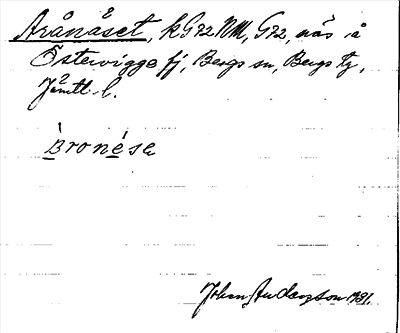 Arånåset, kG72NM, G72, näs å
Östervigge fj, Bergs sn, Bergs tg,
Jämtl l.
Bronése
Johan Anderson 1931.